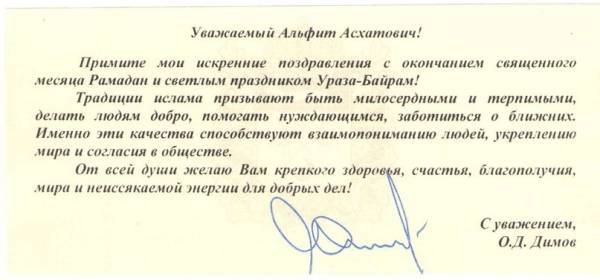 Уважаемый Альфит Асхатович!
Примите мои искренние поздравления с окончанием священного
месяца Рамадан и светлым праздником Ураза-Байрам!
Традиции ислама призывают быть милосердными и терпимыми,
делать людям добро, помогать нуждающимся, заботиться о ближних.
Именно эти качества способствуют взаимопониманию людей, укреплению
мира и согласия в обществе.
От всей души желаю Вам крепкого здоровья, счастья, благополучия,
мира и неиссякаемой энергии для добрых дел!
С уважением,
О.Д. Димов